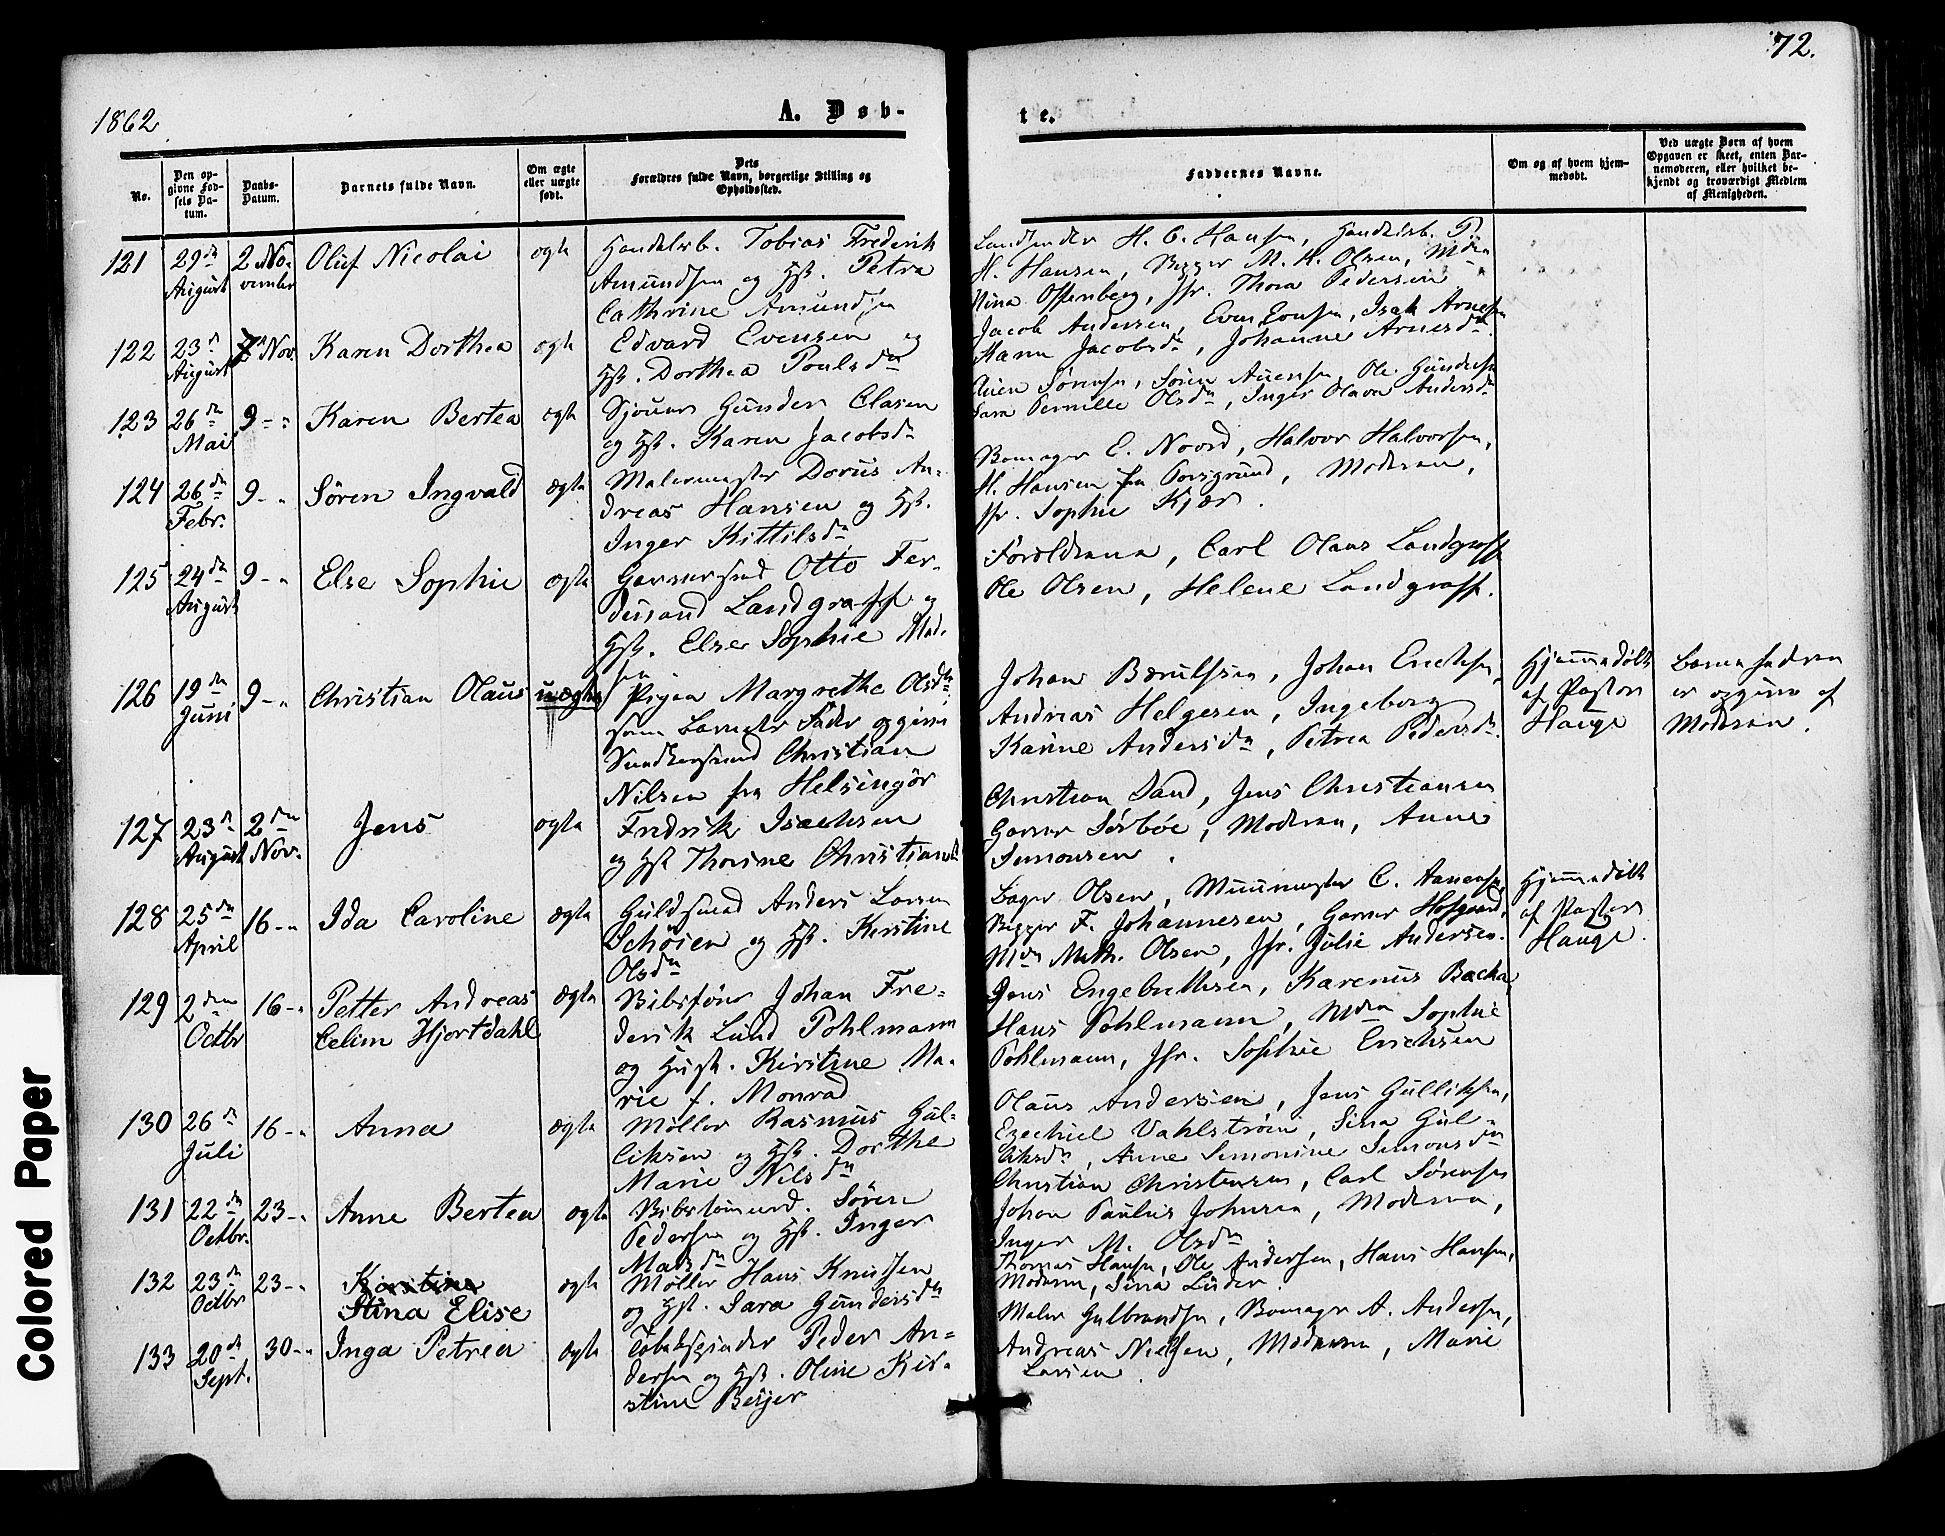 72.
1862
A. Døb-
te.
No.
Den op-
givne Fød-
sels Da-
tum.
Daabs-
Datum.
Barnets fulde Navn.
Om ægte
eller uægte
født.
Dets
Forældres fulde Navn, borgerlige Stilling og
Opholdssted.
Faddernes Navne.
Om og af hvem hjem-
medøbt.
Ved uægte Børn af hvem
Opgaven er skeet, enten Bar-
nemoderen, eller hvilket be-
kjendt og troværdigt Medlem
af Menigheden.
121 29de August 2 November Oluf Nicolai ægte
Handelsb. Tobias Frederik
Amundsen og Hst. Petra
Cathrine Amundsen
H. C. Hansen, Handelsb. P.
H. Hansen, M. H. Olsen, Mdm
Nina Ostenberg, Jfr. Thora Pedersen
122 23d August 7 Nov. Karen Dorthea ægte
Edvard Evensen og
Hst. Dorthea Poulsdr
Jacob Andersen, Even Evensen, Isak Arnesen
Karen Jacobsdr, Johanne Arnesdr
123 26de Mai 9 - " Karen Bertea ægte
Sjouer Gunder Clasen
og Hst. Karen Jacobsdr
Søren Auensen, Ole Gundersen
Sara Pernille Olsdr, Inger Olava Andersdr
124 26de Febr. 9 - " Søren Ingvald ægte
Malermester Dorus An-
dreas Hansen og Hst.
Inger Kittilsdr
E. Noord, Halvor Halvorsen,
H. Hansen fra Porsgrund, Moderen,
Jfr. Sophie Kjær.
125 24de August 9 - " Else Sophie ægte
Garversvend Otto Fer-
dinand Landgraff og
Hst. Else Sophie Mad-
sen
Forældrene, Carl Olaus Landgraff
Ole Olsen, Helene Landgraff.
126 19de Juni 9 - " Christian Olaus uægte
Pigen Margrethe Olsdtr,
som Barnets Fader opgiven
Christian
Nilsen fra Helsingør
Johan Johan Erichsen,
Andreas Helgesen, Ingeborg
Karine Andersdr, Petrea Pedersdr.
Hjemmedøbt
af Pastor
Hauge
Barnefadren
er opgiven af
Moderen.
127 23d August 2den Nov. Jens ægte
Fredrik Isachsen
og Hst Thorine Christiansdr
Christian Sand, Jens Christiansen
Garver Sørbøe, Moderen, Anne
Simonsen.
128 25de April 16 - " Ida Caroline ægte
Guldsmed Anders Larsen
Schøien og Hst. Kirstine
Olsdr
Bager Olsen, Muurmester C. Aanensen,
F. Johannesen, Garver Hofgaard,
Mdm Math. Olsen, Jfr. Julie Andersen.
Hjemmedøbt
af Pastor
Hauge.
129 2den Octbr 16 - " Petter Andreas
Celim Hjortdahl ægte
Johan Fre-
derik Lund Pohlmann
og Hust. Kirstine Ma-
rie f. Monrad
Jens Engebrethsen, Karenus Backa,
Hans Pohlmann, Mdm Sophie
Pohlmann, Jfr. Sophie Erichsen
130 26d Juli 16 - " Anna ægte
Møller Rasmus Gul-
liksen og Hst. Dorthe
Marie Nilsdr
Olaus Andersen, Jens Gulliksen,
Ezechiel Vahlstrøm, Sina Gul-
liksdr, Anne Simonine Simonsdr
131 22de Octbr. 23 - " Anne Bertea ægte
Søren
Pedersen og Hst. Inger
Madsdr
Christian Christensen, Carl Sørensen
Johan Paulus Johnsen, Moderen,
Inger M. Olsdr
132 23de Octbr 23 - " Kirstine
Stina Elise ægte
Møller Hans Knudsen
og Hst. Sara Gundersdr
Thomas Hansen, Ole Andersen, Hans Hansen,
Moderen, Sina Lüder
133 20de Sept. 30 - " Inga Petrea ægte
Tobakspinder Peder An-
dersen og Hst. Oline Kir-
stine Beyer
Maler Gulbrandsen, A. Andersen,
Andreas Nielsen, Moderen, Marie
Larsen.
Colored Paper